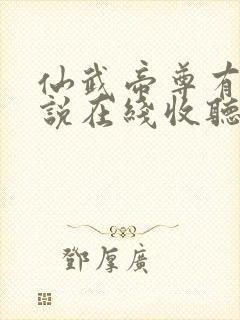 仙武帝尊有
說在綫收聽
鄧厚廣